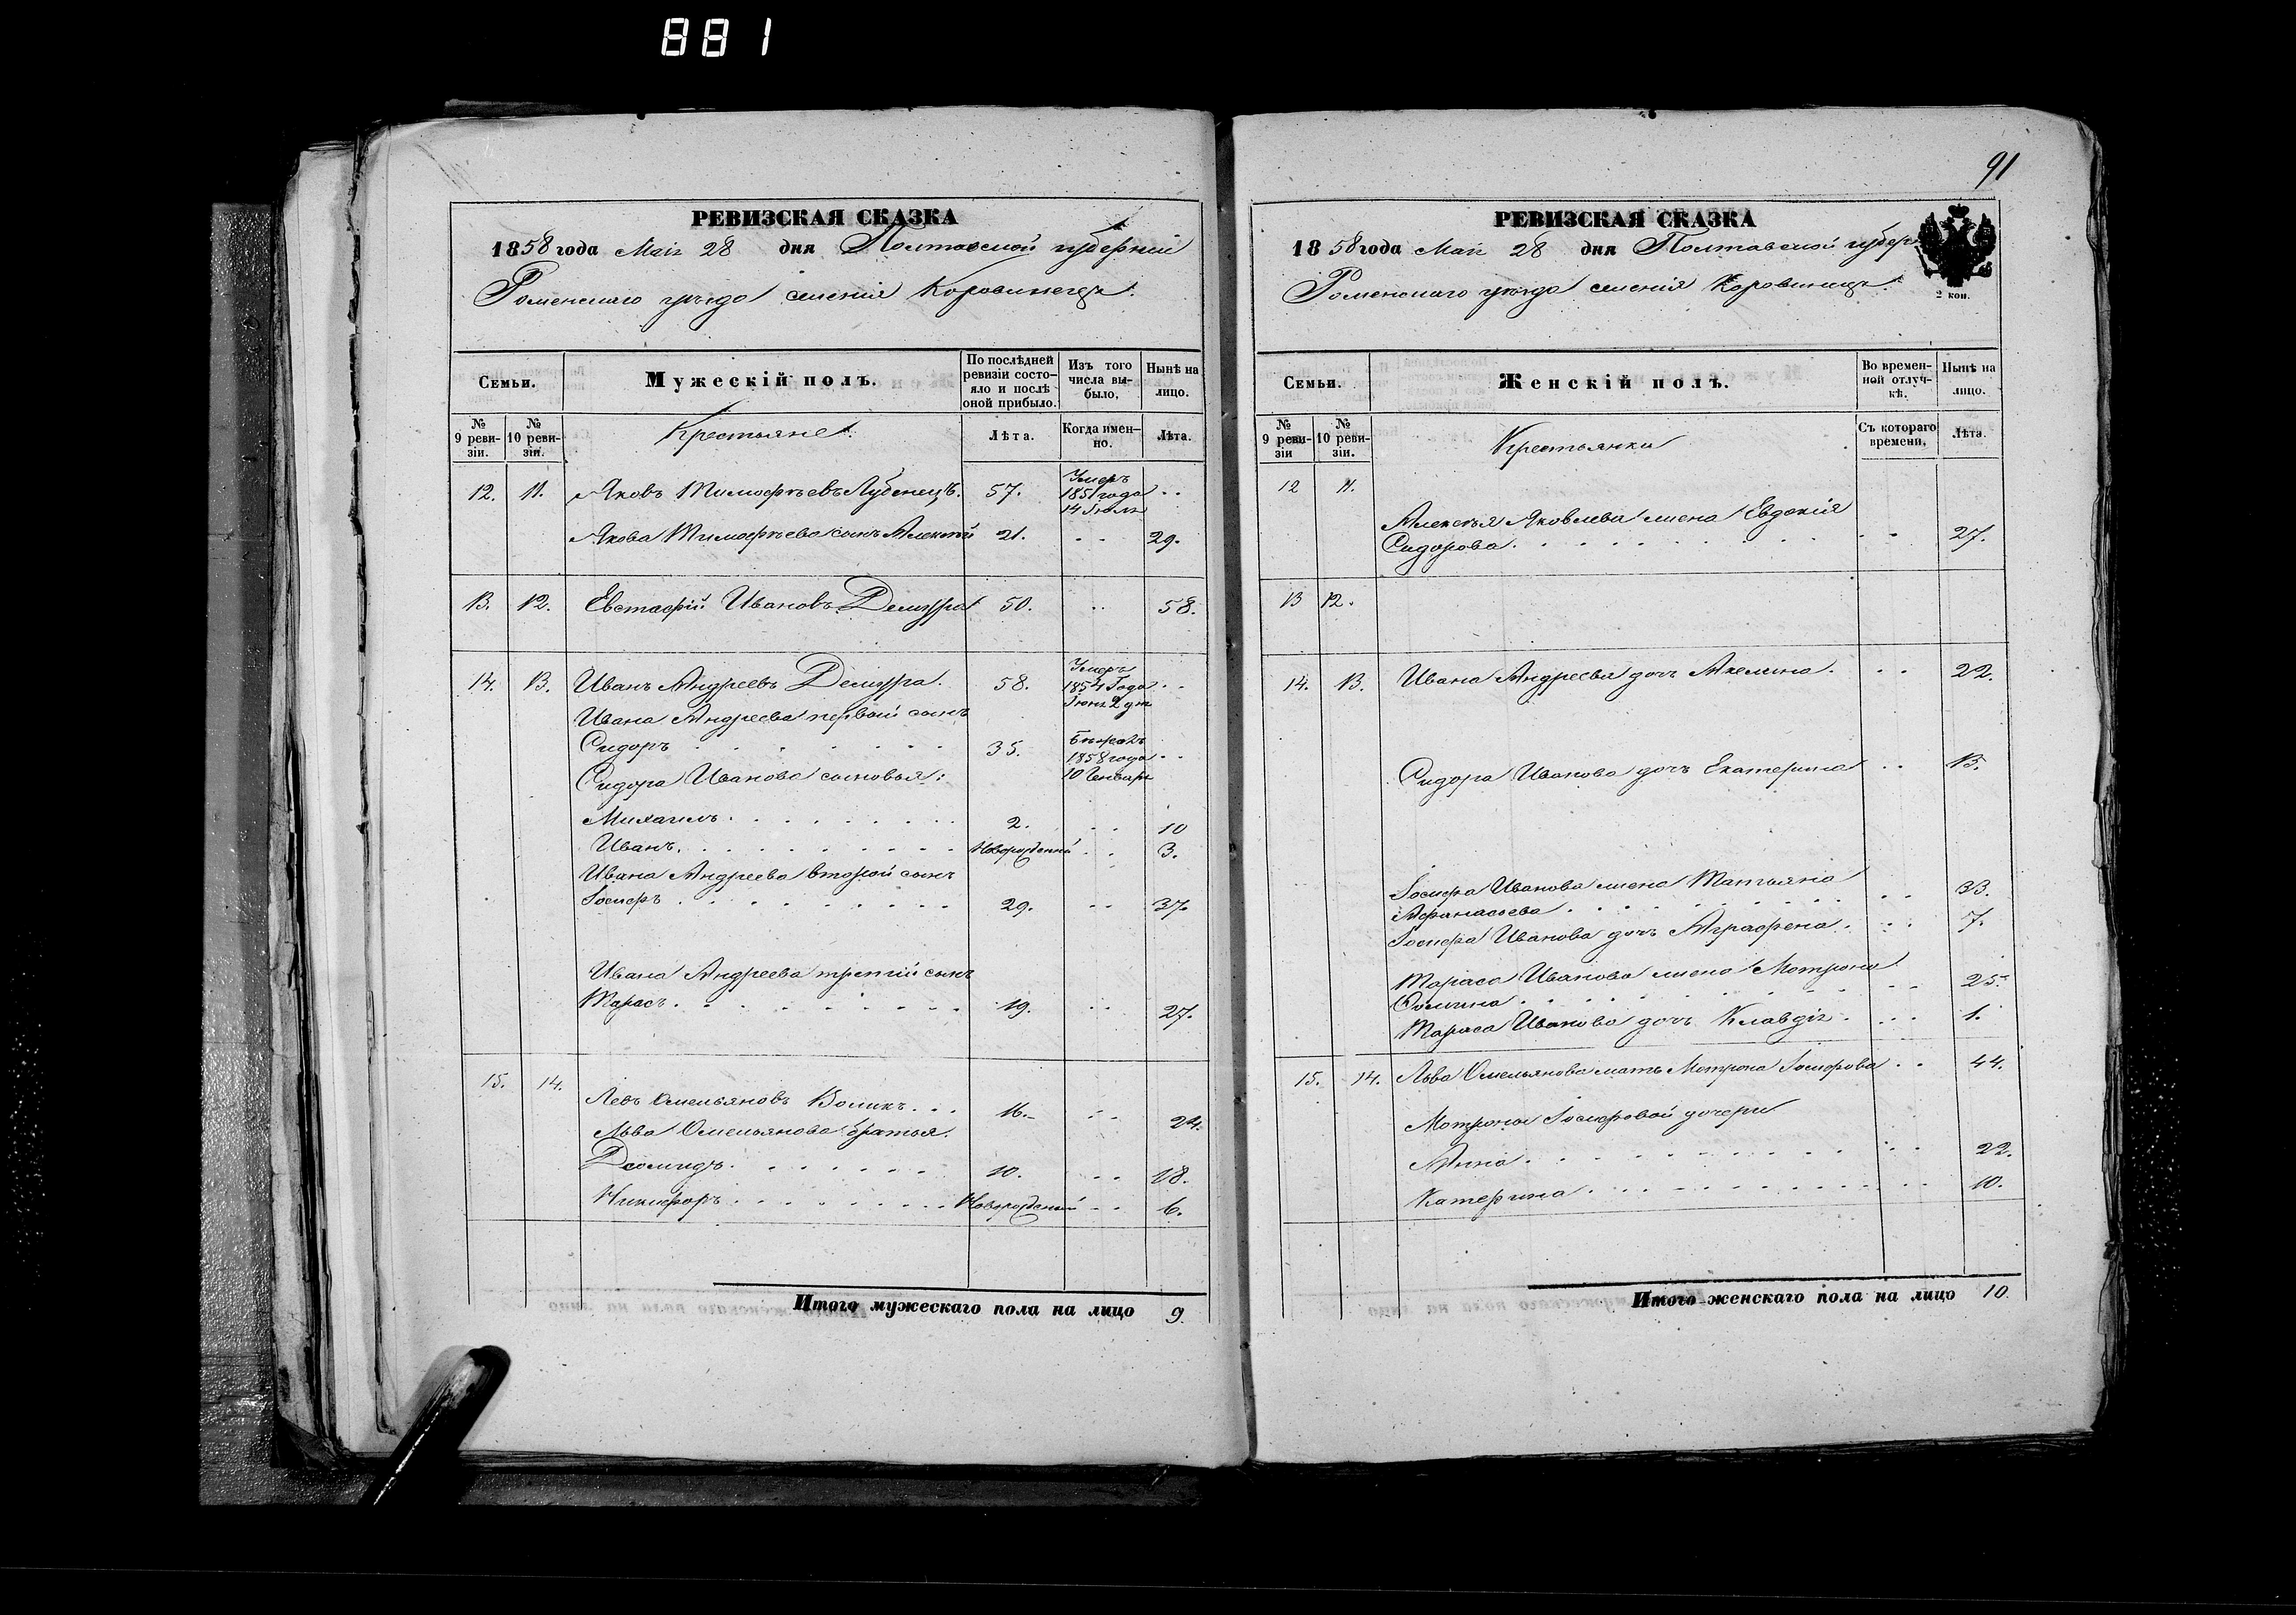 881
РЕВИЗСКАЯ СКАЗКА
1858 года Мая 28 дня Полтавской губерніи
Роменскаго уѣзда селенія Коровинецъ.
Семьи.
Мужескій полъ.
По послѣдней ревизіи состо-
яло и послѣ оной прибыло.
Изъ того числа вы-
было,
Нынѣ на лицо.
№ 9 реви-
зіи.
№ 10 реви-
зіи.
Крестьяне.
Лѣта.
Когда имен-
но.
Лѣта.
12. 11. Яковъ Тимофѣевъ Лубенецъ. 57. Умеръ 1851 года 14 Іюля
Якова Тимофѣева сынъ Алексѣй 21. 29.
13. 12. Евстафій Ивановъ Демура 50. 58.
14. 13. Иванъ Андреевъ Демура. 58. Умеръ 1854 Года
Ивана Андреева первый сынъ
Сидоръ 35. 1858 года 10 Генваря
Сидора Иванова сыновья:
Михаилъ. 2. 10
Иванъ. Новорожденный 3.
Ивана Андреева второй сынъ
Іосифъ 29. 37.
Ивана Андреева третій сынъ
Тарасъ. 19. 27.
15. 14. Левъ Омельяновъ Воликъ. 16. 24.
Льва Омельянова братья.
Деомидъ. 10. 18.
Никифоръ. Новорожденный 6.
Итого мужескаго пола на лицо 9.
91
РЕВИЗСКАЯ СКАЗКА
1858 года Мая 28 дня Полтавской губер
Роменскаго уѣзда селенія Коровинецъ.
2 коп.
Семьи.
Женскій полъ.
Во времен-
ной отлуч-
кѣ.
Нынѣ на лицо.
№ 9 реви-
зіи
№ 10 реви-
зіи.
Крестьянки
Съ котораго времени,
Лѣта.
12 11. Алексѣя Яковлева жена Евдокія
Сидорова. 27.
13 12.
14. 13. Ивана Андреева дочь Акелина. 22.
Сидора Иванова дочь Екатерина 13.
Іосифа Иванова жена Татьяна
Афанасьева 33.
Іосифа Иванова дочь Аграфена. 7.
Тараса Иванова жена Мотрона
25.
Тараса Иванова дочь Клавдія. 1.
15. 14. Льва Омельянова мать Мотрона Іосифова 44.
Мотроны Іосифовой дочери
Анна 22.
Катерина 10.
Итого женскаго пола на лицо 10.